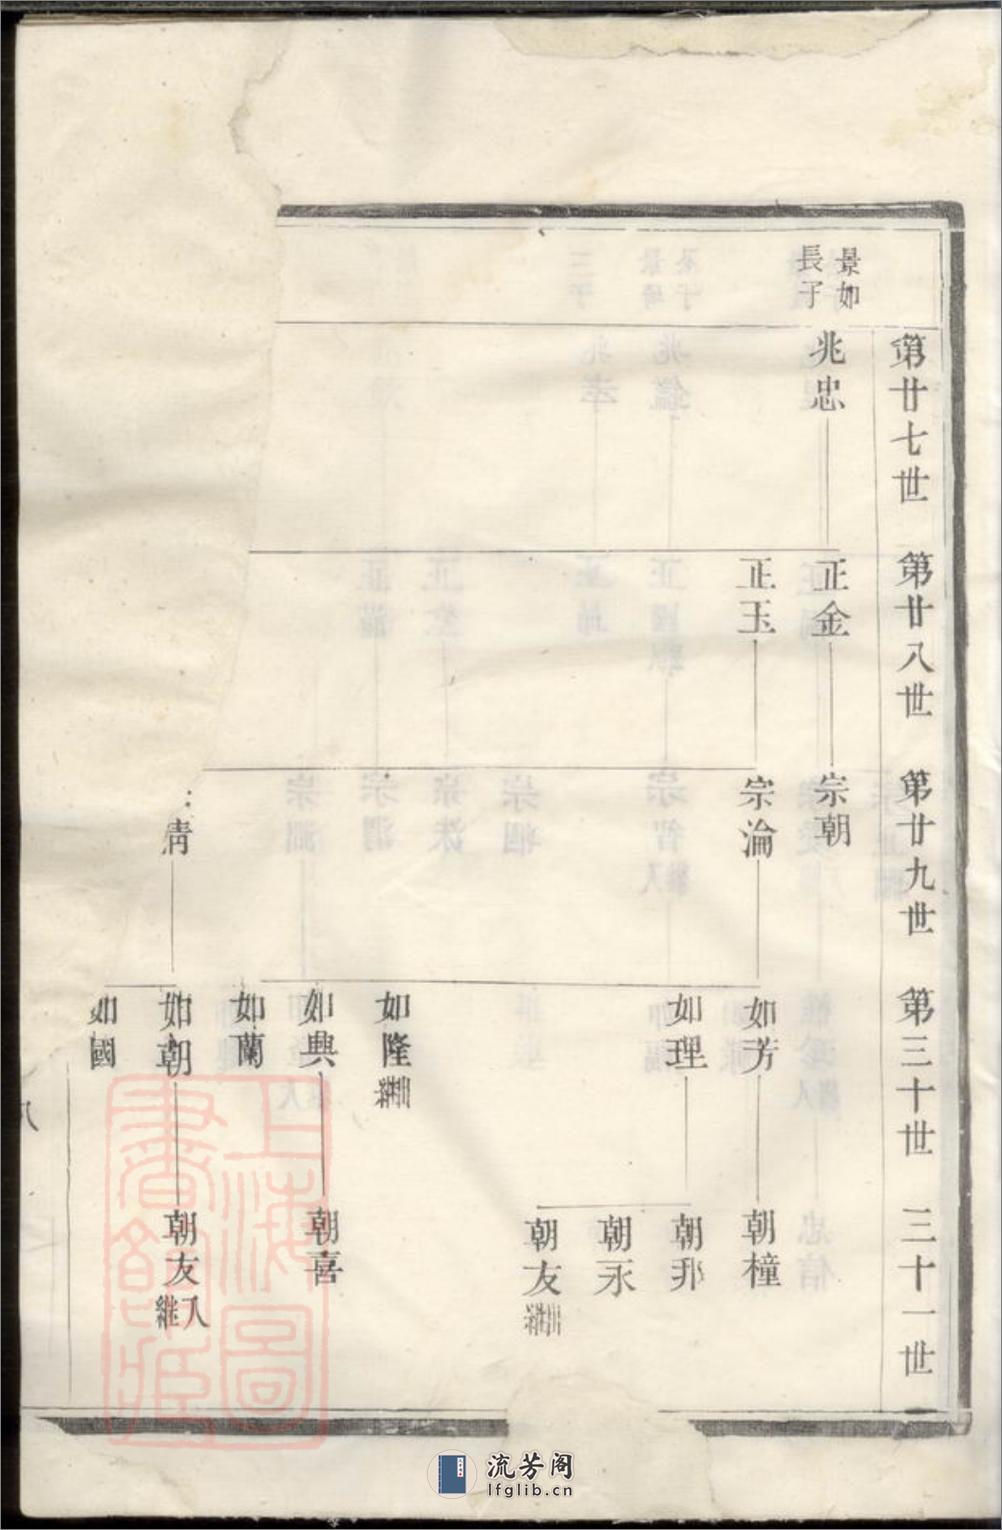 第廿七世
第廿八世
第廿九世
第三十世
三十一世
景如
長子
兆忠
正金
正玉
宗朝
宗淪
清
如芳
如理
如隆
如興
如蘭
如朝
如國
朝橦
朝邦
朝永
朝友出繼
朝喜
朝友入繼
八
上海圖
書館藏
流芳阁
lfglib.cn